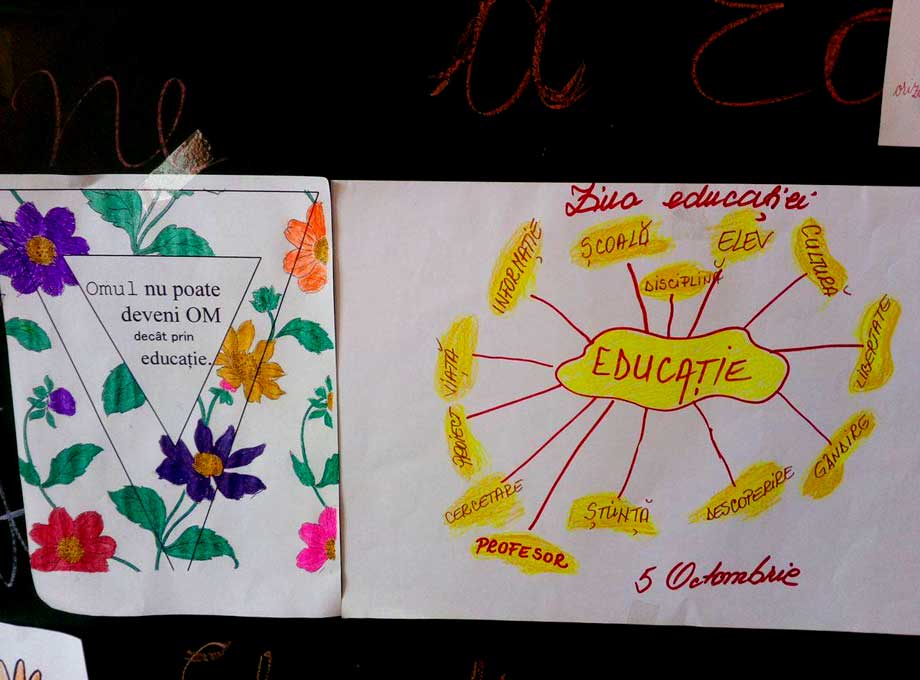 ne
Omul nu poate
deveni OM
decât prin
educație.
Ziua educației
INFORMAȚIE
ȘCOALĂ
ELEV
CULTURĂ
DISCIPLINĂ
LIBERTATE
VIAȚĂ
EDUCAȚIE
PROIECT
GÂNDIRE
CERCETARE
ȘTIINȚĂ
DESCOPERIRE
PROFESOR
5 Octombrie